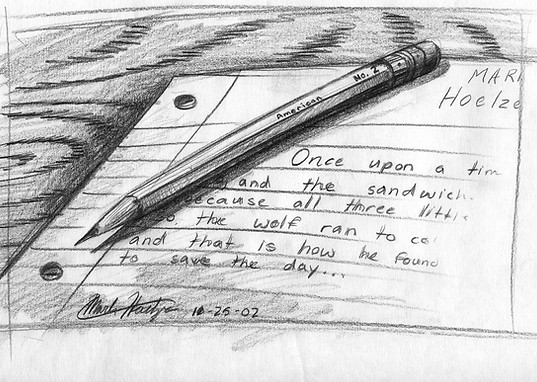 American No. 2
MARK
Hoelze
Once upon a tim
and the sandwich.
because all three little
the wolf ran to
and that is how he found
to save the day...
11-25-02